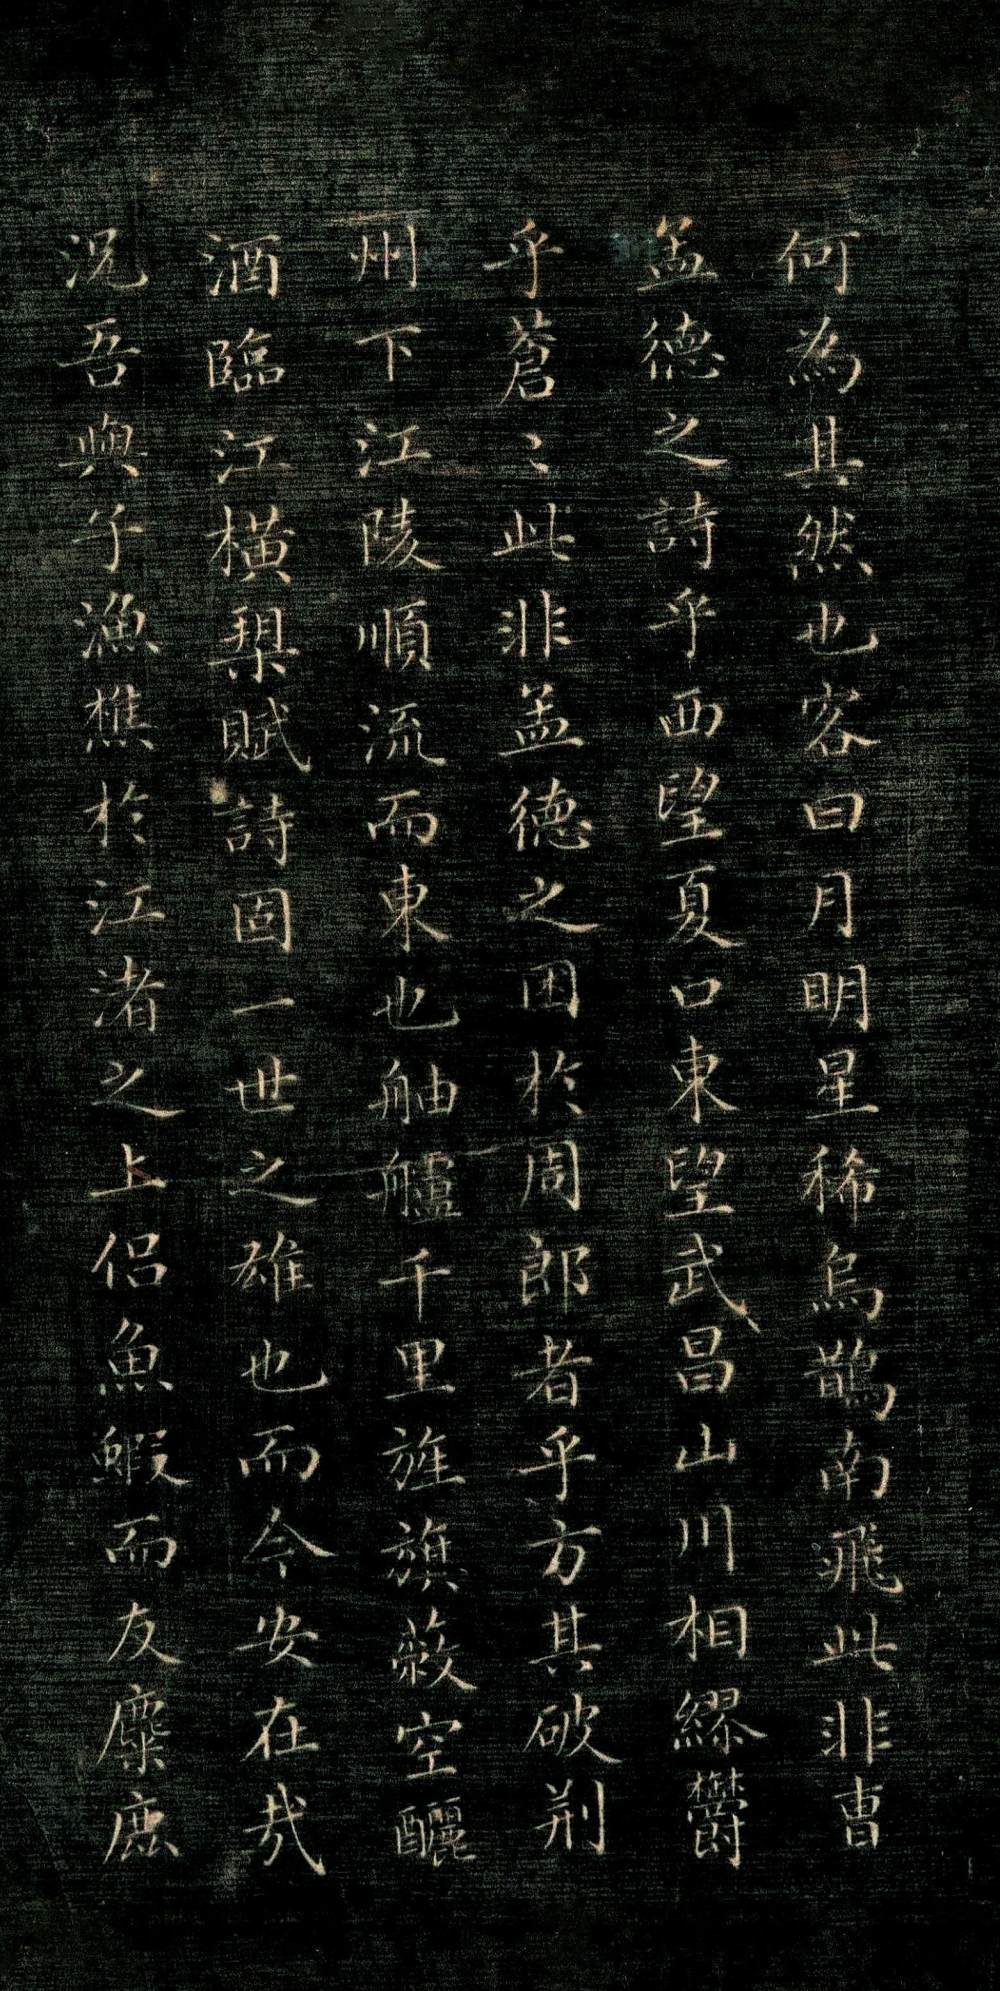 何為其然也客曰月明星稀烏鵲南飛此非曹
孟德之詩乎西望夏口東望武昌山川相繆欝
乎蒼〻此非孟德之困於周郎者乎方其破荆
州下江陵順流而東也舳艫千里旌旗蔽空釃
酒臨江橫槊賦詩固一世之雄也而今安在㦲
況吾與子漁樵於江渚之上侣魚鰕而友麋鹿